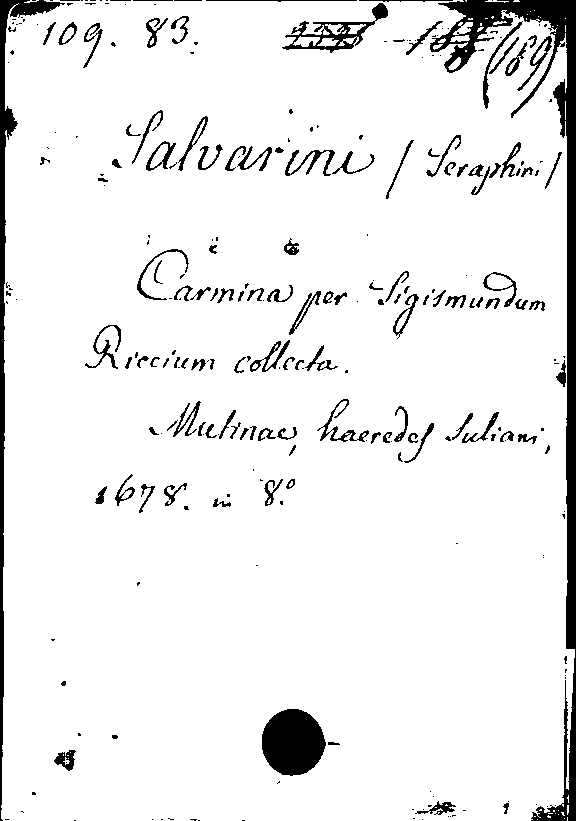 109. 83. 188 (189)
Salvarini / Seraphini /
Carmina per Sigismundum
Riccium collecta.
Mutinae, haeredes Suliani,
1678. in 8.º